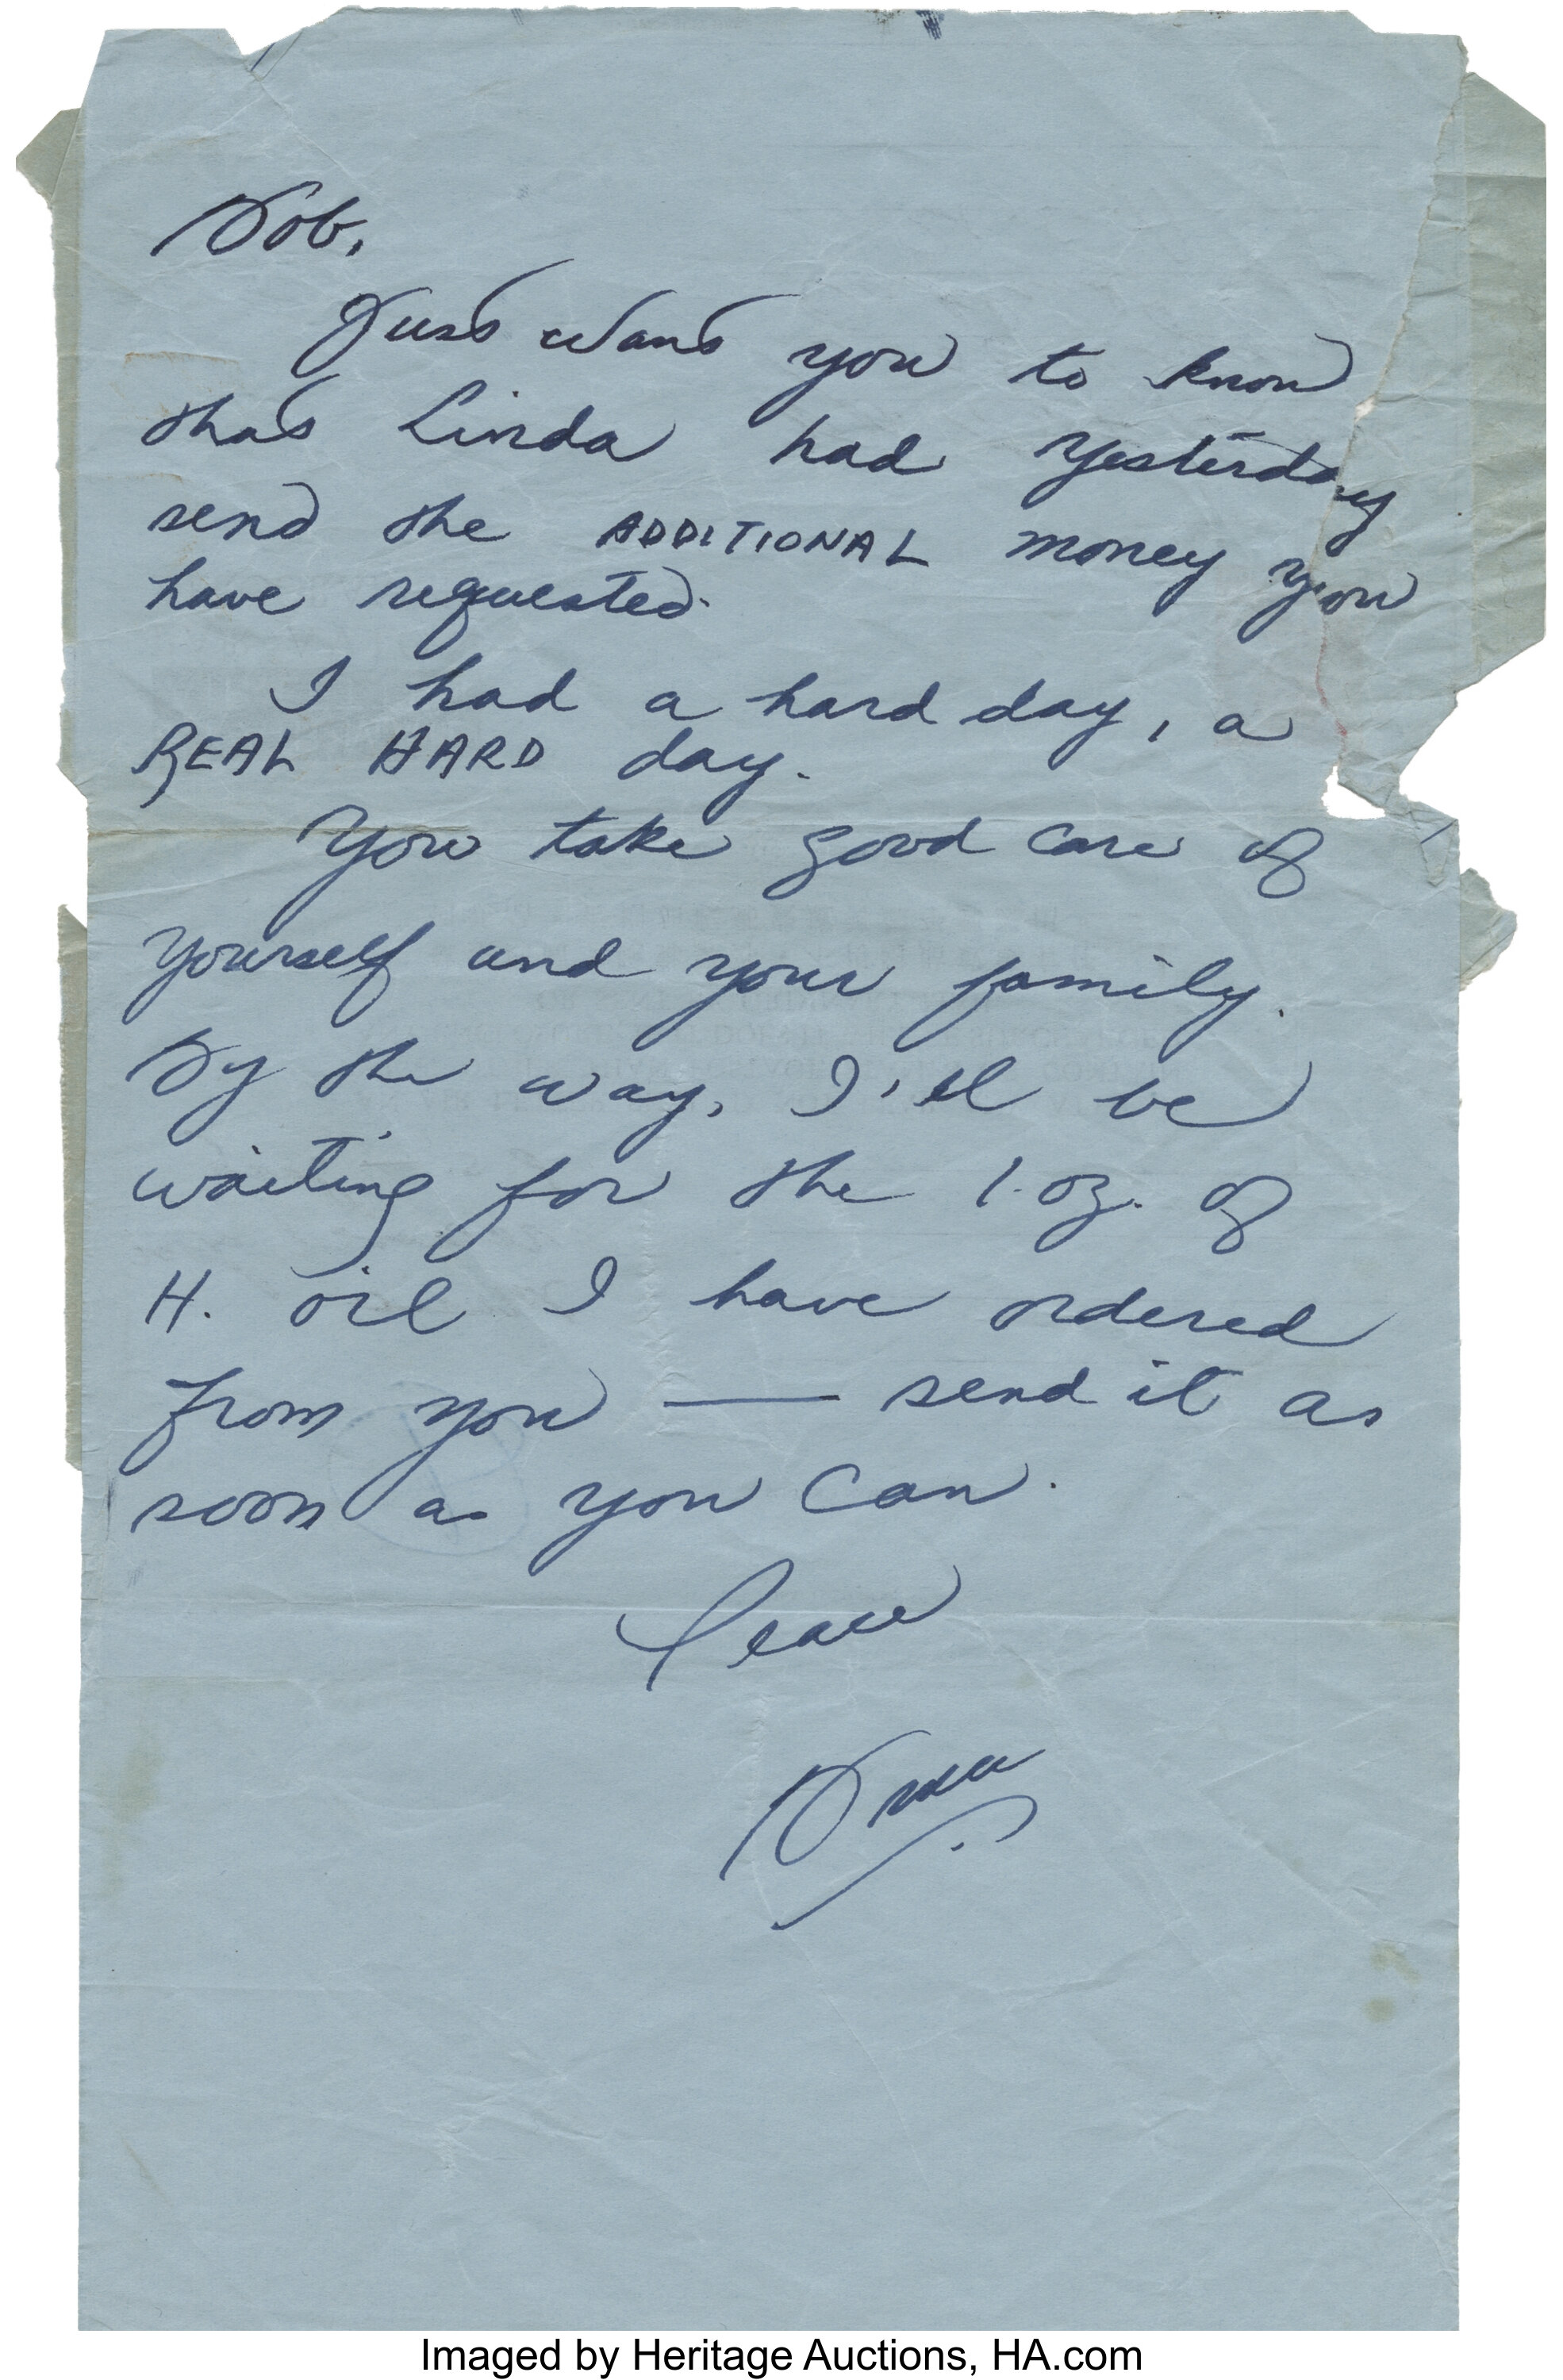 Bob,
Just want you to know
that Linda had yesterday
send the ADDITIONAL money you
have requested.
I had a hard day, a
REAL HARD day.
You take good care of
yourself and your family.
By the way, I'll be
waiting for the 1. oz. of
H. oil I have ordered
from you — send it as
soon as you can.
Peace
Bruce
Imaged by Heritage Auctions, HA.com